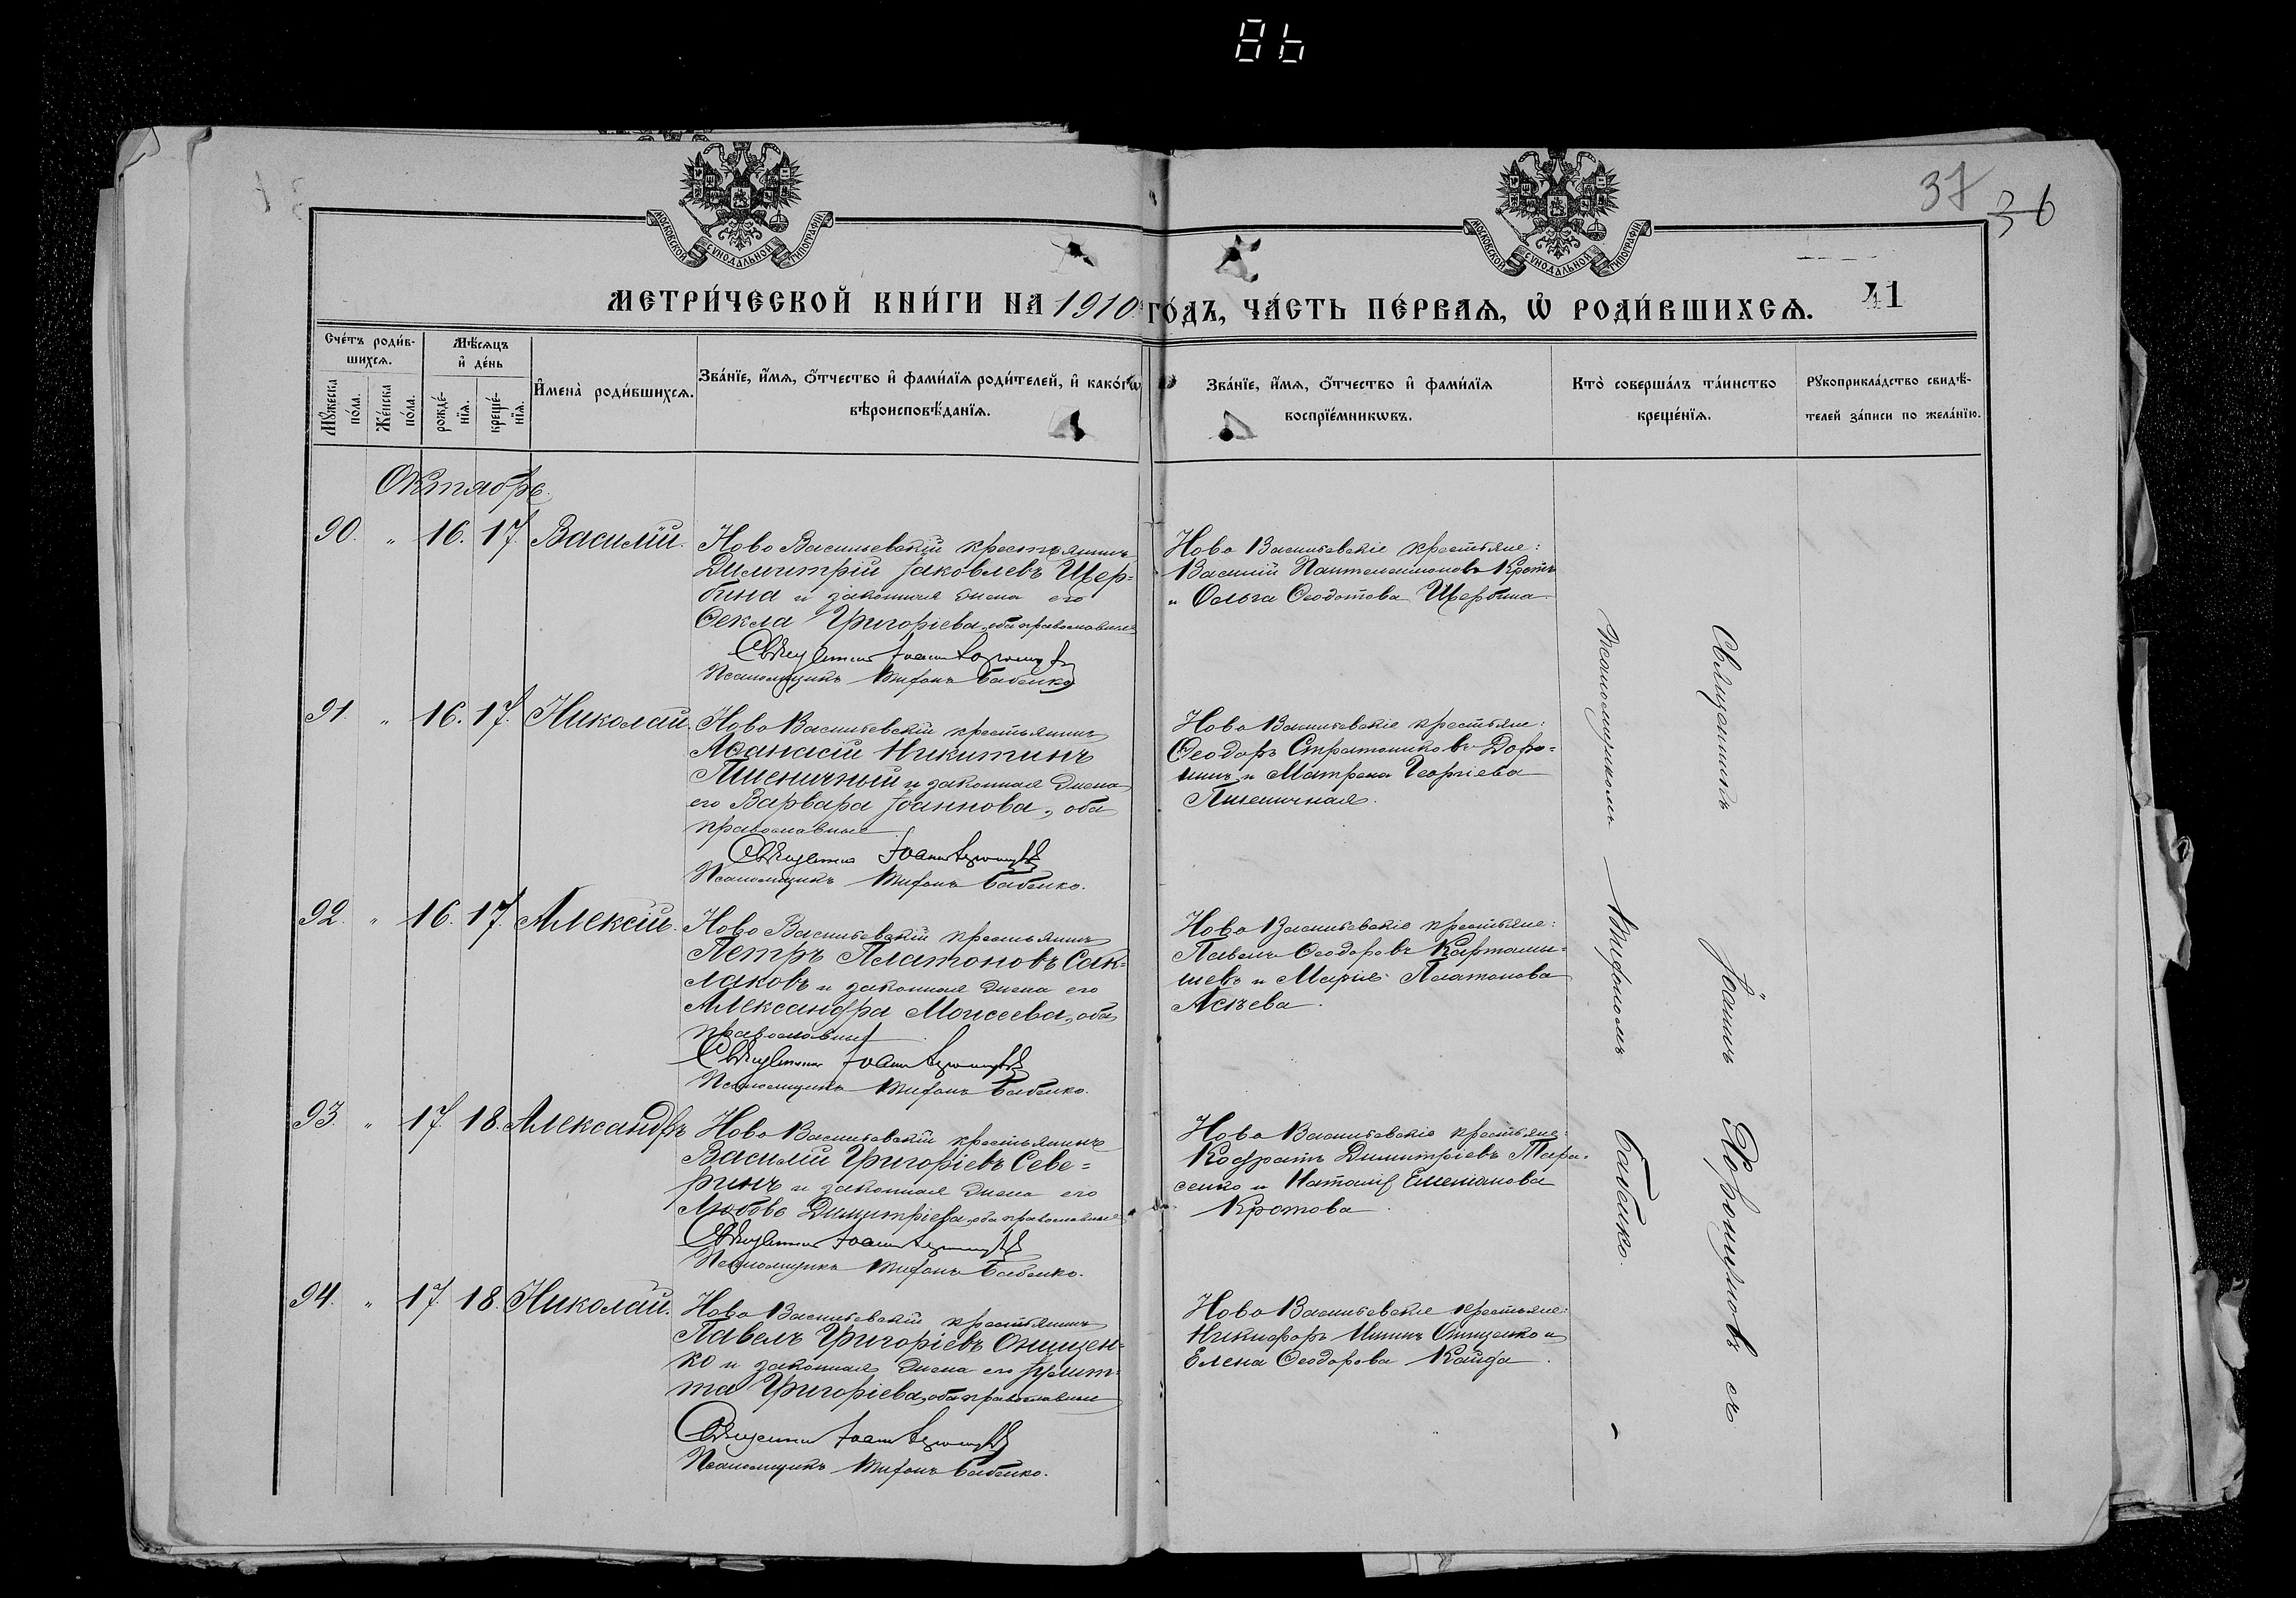 86
37
36
МОСКОВСКОЙ СѴНОДАЛЬНОЙ ТИПОГРАФІИ
МОСКОВСКОЙ СѴНОДАЛЬНОЙ ТИПОГРАФІИ
МЕТРИ́ЧЕСКОЙ КНИ́ГИ НА 1910 ГО́ДЪ, ЧА́СТЬ ПЕ́РВАѦ, Ѡ҆ РОДИ́ВШИХСѦ.
41
Сче́тъ роди́в-
шихсѧ.
Мꙋ́жеска
по́ла.
Же́нска
по́ла.
Мѣ́сѧцъ
и҆ де́нь
рожде́-
нїѧ.
креще́-
нїѧ.
И҆мена̀ роди́вшихсѧ.
Зва́нїе, и҆́мѧ, ѻ҆́тчество и҆ фами́лїѧ роди́телей, и҆ како́гѡ
вѣроисповѣ́данїѧ.
Зва́нїе, и҆́мѧ, ѻ҆́тчество и҆ фами́лїѧ
воспрїе́мникѡвъ.
Кто̀ соверша́лъ та́инство
креще́нїѧ.
Рꙋкоприкла́дство свидѣ́-
телей за́писи по жела́нїю.
Октябрь.
90. " 16. 17. Василій.
Ново Васильевскій крестьянинъ
Димитрій Іаковлевъ Щер=
бина и законная жена его
Ѳекла Григоріева, оба православные
Священникъ Іоаннъ
Псаломщикъ Трифонъ Бабенко
Ново Васильевскіе крестьяне:
Василій Пантелеимоновъ Кротъ
и Ольга Ѳеодотова Щербина
91. " 16. 17. Николай.
Ново Васильевскій крестьянинъ
Аѳанасій Никитинъ
Пшеничный и законная жена
его Варвара Іоаннова, оба
православные
Священникъ Іоаннъ
Псаломщикъ Трифонъ Бабенко.
Ново Васильевскіе крестьяне:
Ѳеодоръ Стратониковъ Доро=
нинъ и Матрона Георгіева
Пшеничная.
92. " 16. 17. Алексій.
Ново Васильевскій крестьянинъ
Петръ Платоновъ Сак=
лаковъ и законная жена его
Александра Моисеева, оба
православные
Священникъ Іоаннъ
Псаломщикъ Трифонъ Бабенко.
Ново Васильевскіе крестьяне:
Павелъ Ѳеодоровъ Картамы=
шевъ и Марія Платонова
93. " 17. 18. Александръ
Ново Васильевскій крестьянинъ
Василій Григоріевъ Севе=
ринъ и законная жена его
Любовь Димитріева, оба православные
Священникъ Іоаннъ
Псаломщикъ Трифонъ Бабенко.
Ново Васильевскіе крестьяне:
Кодратъ Димитріевъ Тара=
сенко и Наталія Емеліанова
Кротова.
94. " 17. 18. Николай.
Ново Васильевскій крестьянинъ
Павелъ Григоріевъ Онищен=
ко и законная жена его Іулит=
та Григоріева, оба православные
Священникъ Іоаннъ
Псаломщикъ Трифонъ Бабенко.
Ново Васильевскіе крестьяне:
Никифоръ Онищенко и
Елена Ѳеодорова Кайда.
Священникъ Іоаннъ съ
Псаломщикомъ Трифономъ Бабенко.